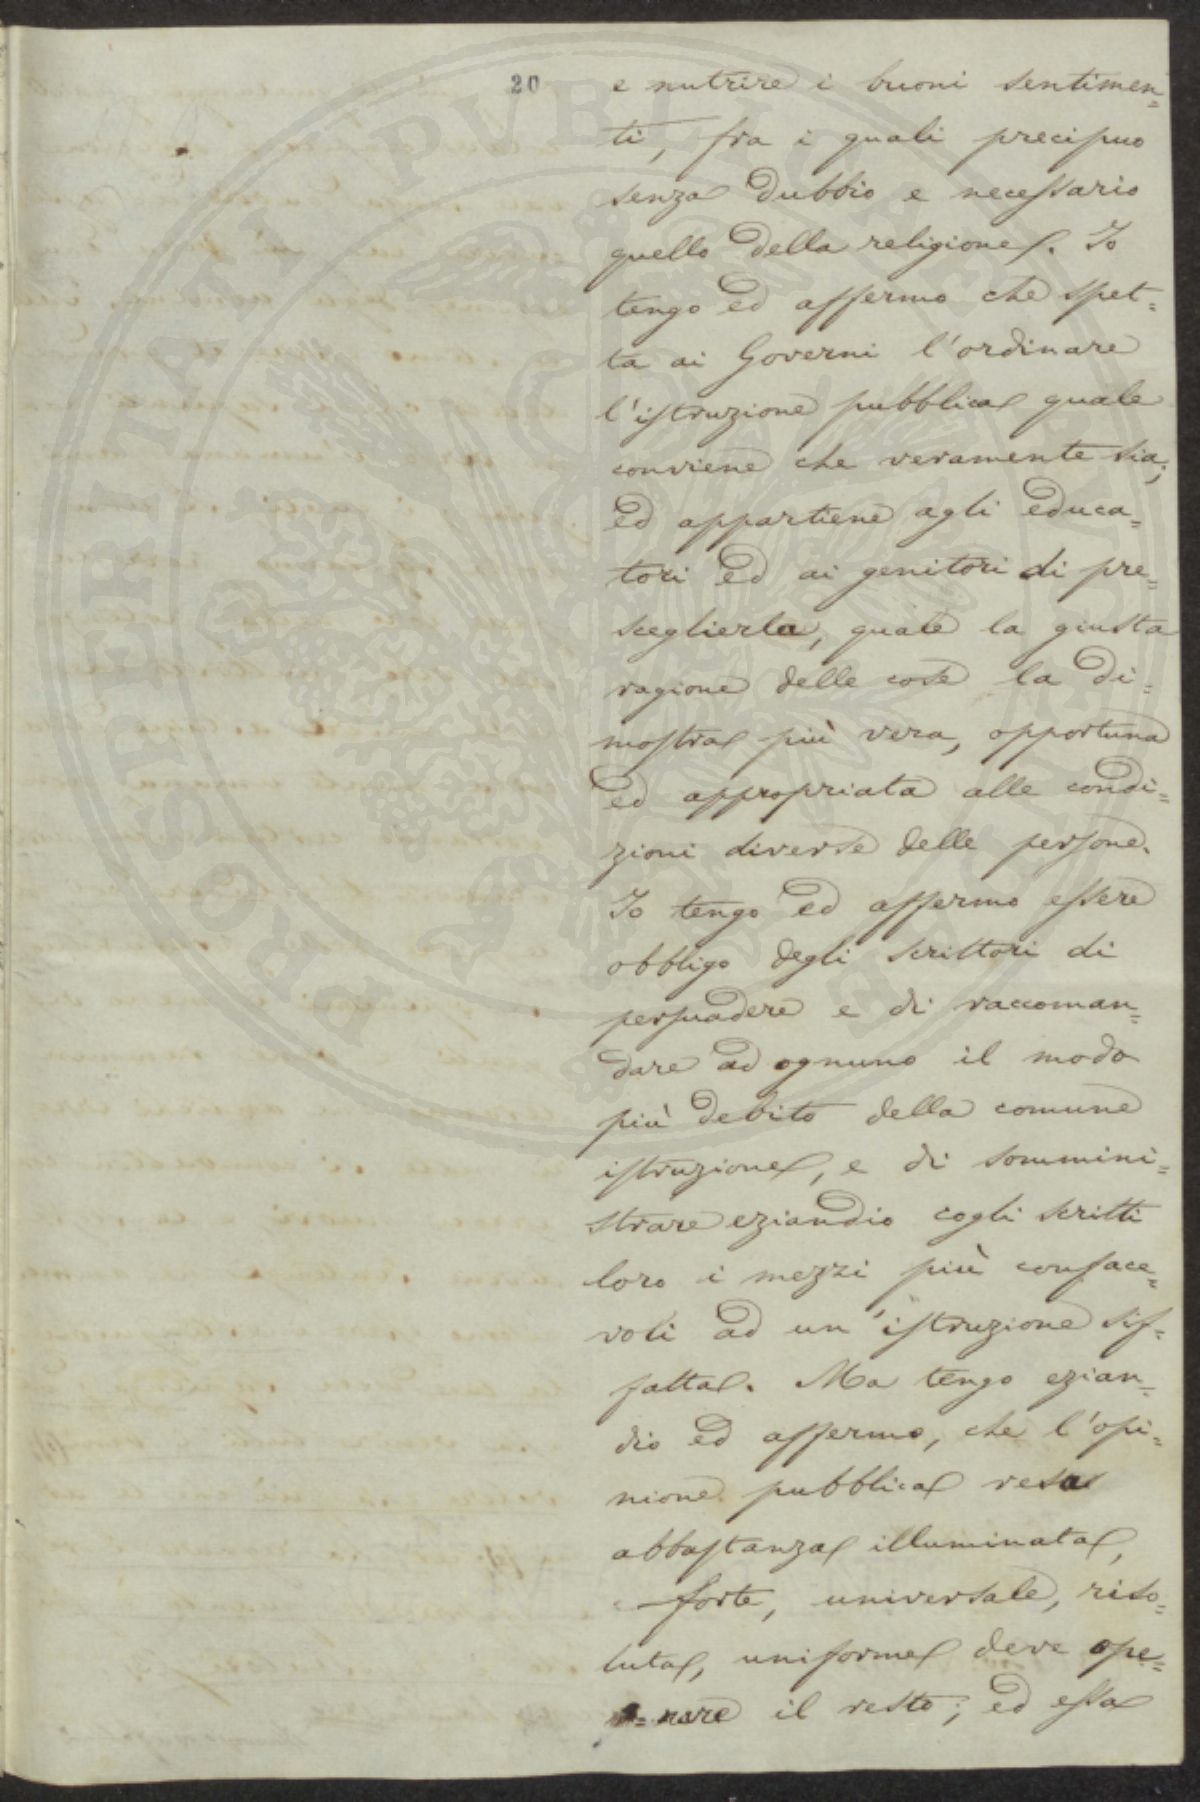 20
e nutrire i buoni sentimen=
ti, fra i quali precipuo
senza dubbio e necessario
quello della religione. Io
tengo ed affermo che spet=
ta ai Governi l'ordinare
l'istruzione pubblica quale
conviene che veramente sia;
ed appartiene agli educa=
tori ed ai genitori di pre=
sceglierla, quale la giusta
ragione delle cose la di=
mostra più vera, opportuna
ed appropriata alle condi=
zioni diverse delle persone.
Io tengo ed affermo essere
obbligo degli scrittori di
persuadere e di raccoman=
dare ad ognuno il modo
più debito della comune
istruzione, e di sommini=
strare eziandio cogli scritti
loro i mezzi più conface=
voli ad un'istruzione sif=
fatta. Ma tengo ezian=
dio ed affermo, che l'opi=
nione pubblica resa
abbastanza illuminata,
forte, universale, riso=
luta, uniforme deve ope=
rare il resto; ed essa
PROSPERITATI PVBLICAE